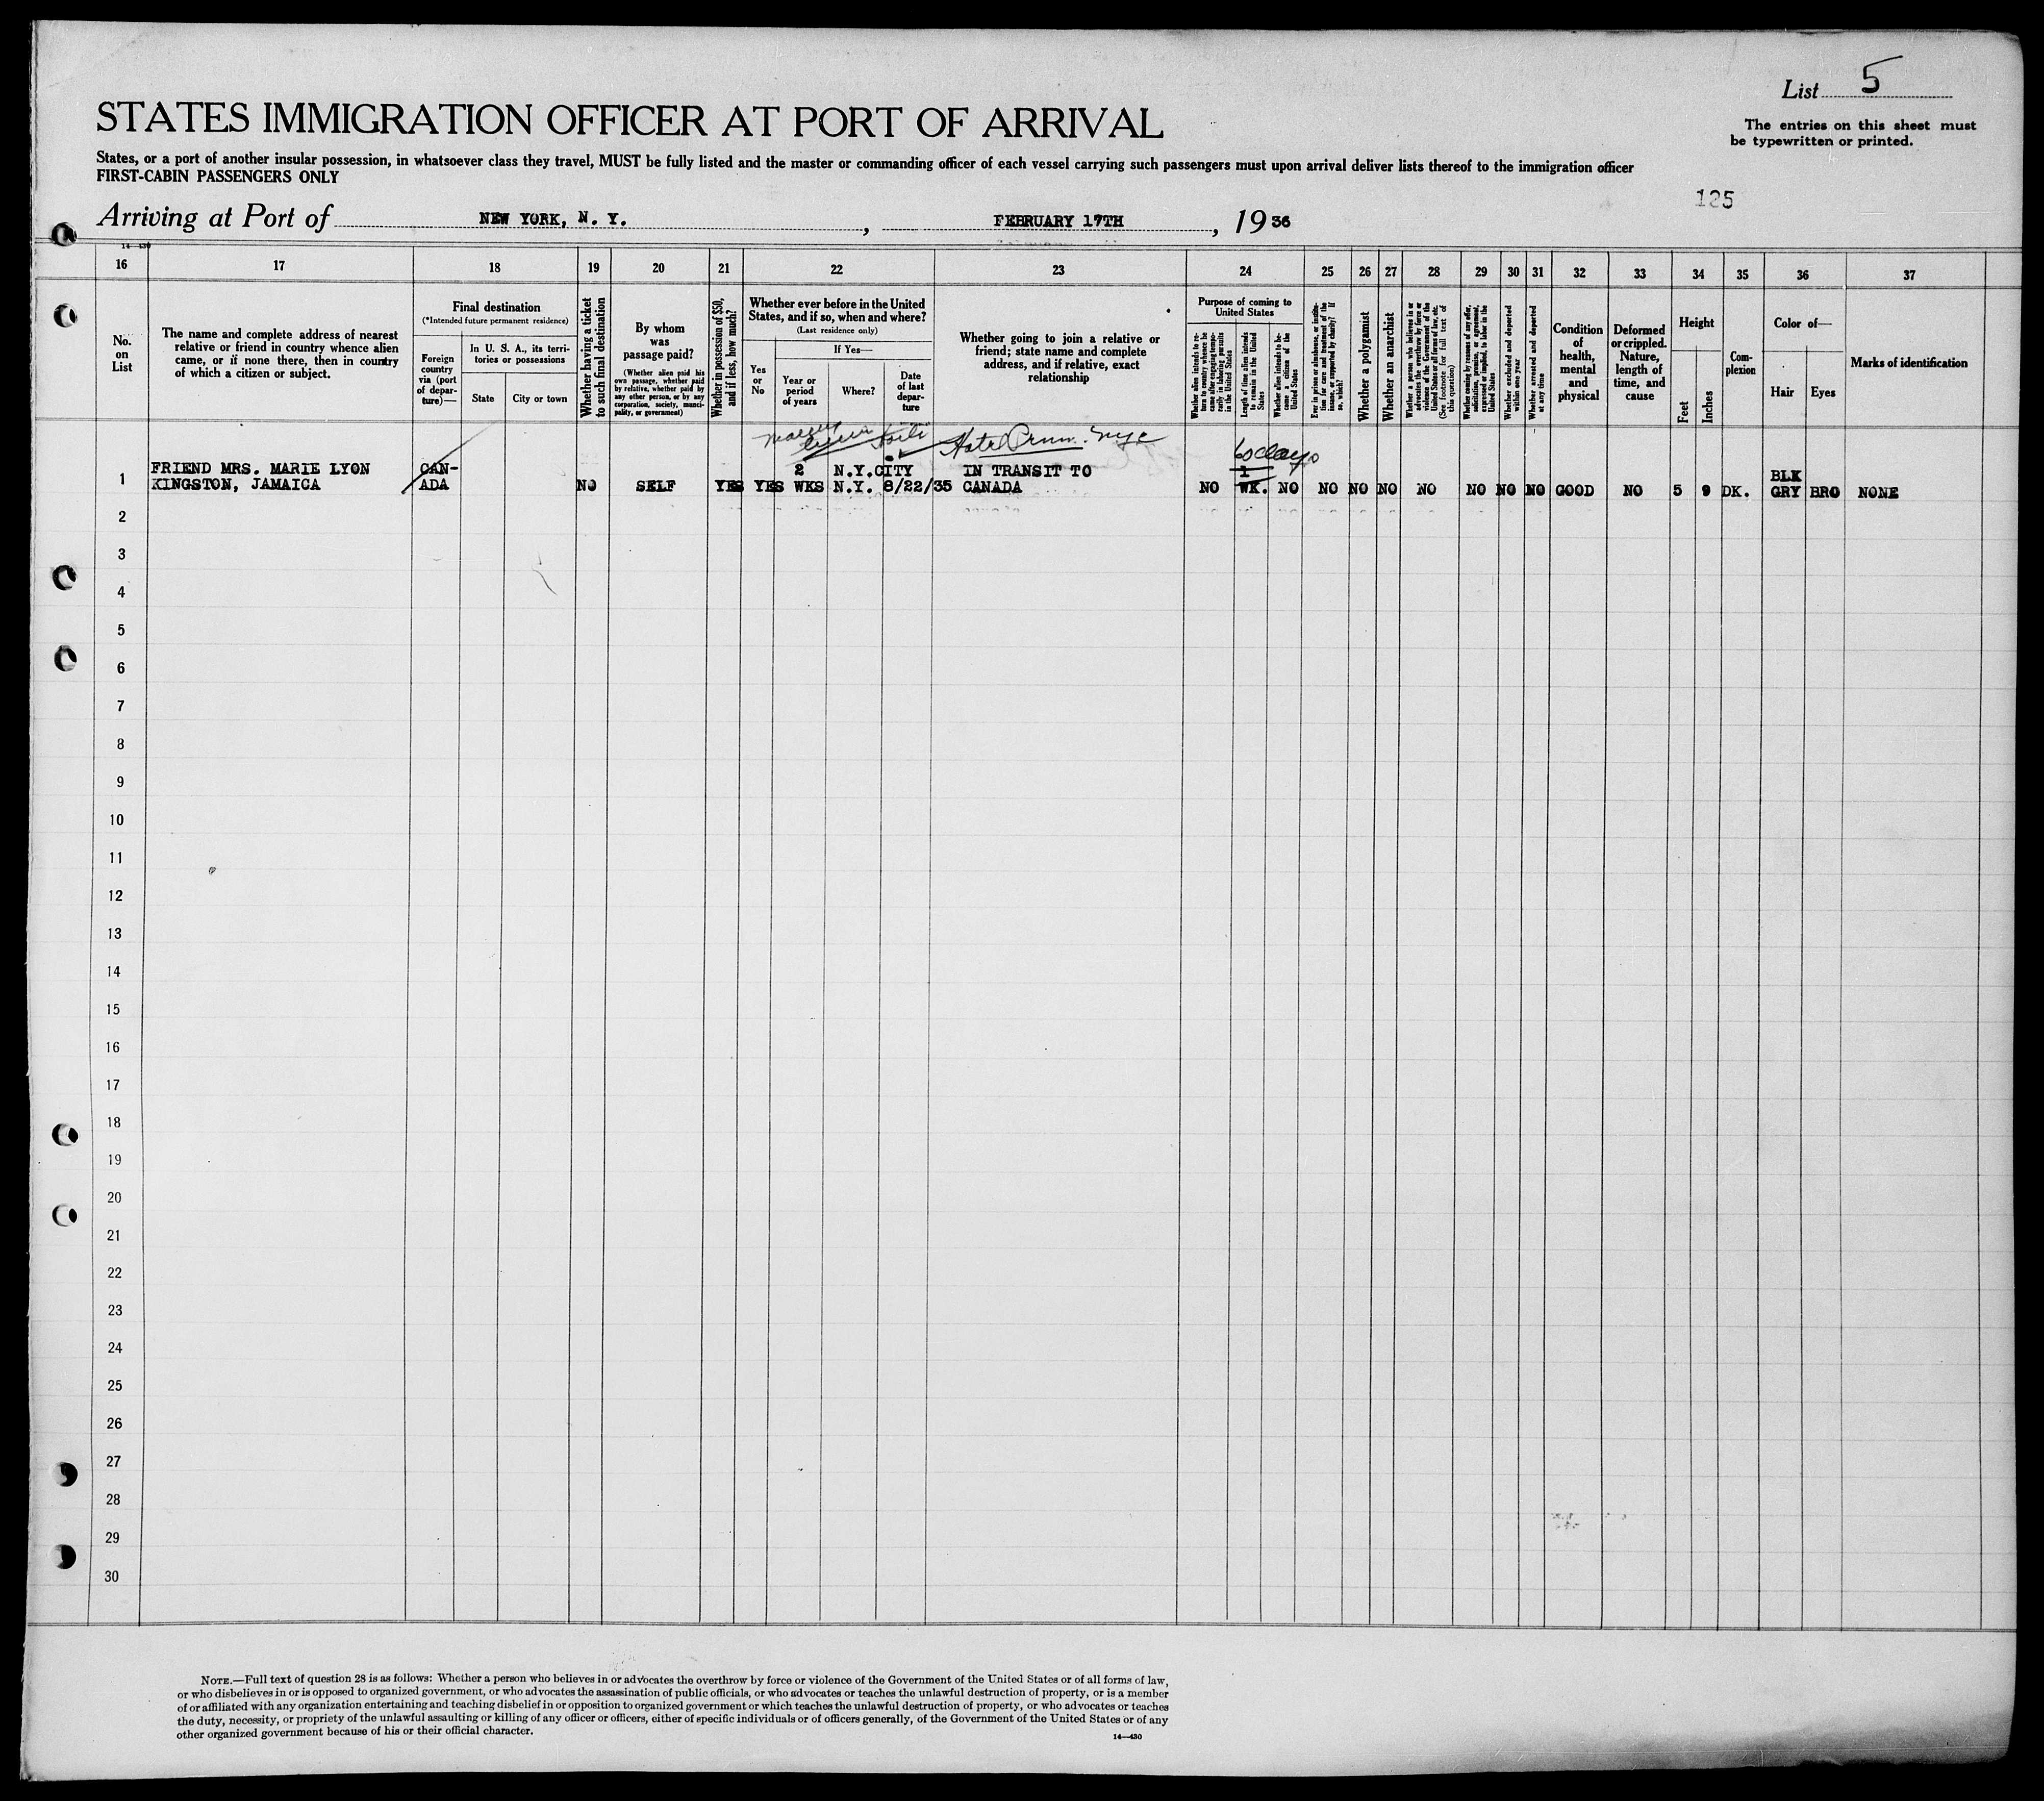 List 5
STATES IMMIGRATION OFFICER AT PORT OF ARRIVAL
The entries on this sheet must
be typewritten or printed.
States, or a port of another insular possession, in whatsoever class they travel, MUST be fully listed and the master or commanding officer of each vessel carrying such passengers must upon arrival deliver lists thereof to the immigration officer
FIRST-CABIN PASSENGERS ONLY
125
Arriving at Port of NEW YORK, N. Y. , FEBRUARY 17TH , 19 36
14—430
16 17 18 19 20 21 22 23 24 25 26 27 28 29 30 31 32 33 34 35 36 37
No.
on
List
The name and complete address of nearest
relative or friend in country whence alien
came, or if none there, then in country
of which a citizen or subject.
Final destination
(*Intended future permanent residence)
Foreign
country
via (port
of depar-
ture)—
In U. S. A., its terri-
tories or possessions
State
City or town
Whether having a ticket
to such final destination
By whom
was
passage paid?
(Whether alien paid his
own passage, whether paid
by relative, whether paid by
any other person, or by any
corporation, society, munici-
pality, or government)
Whether in possession of $50,
and if less, how much?
Whether ever before in the United
States, and if so, when and where?
(Last residence only)
Yes
or
No
If Yes—
Year or
period
of years
Where?
Date
of last
depar-
ture
Whether going to join a relative or
friend; state name and complete
address, and if relative, exact
relationship
Purpose of coming to
United States
Whether alien intends to re-
turn to country whence he
came after engaging tempo-
rarily in laboring pursuits
in the United States
Length of time alien intends
to remain in the United
States
Whether alien intends to be-
come a citizen of the
United States
Ever in prison or almshouse, or institu-
tion for care and treatment of the
insane, or supported by charity? If
so, which?
Whether a polygamist
Whether an anarchist
Whether a person who believes in or
advocates the overthrow by force or
violence of the Government of the
United States or all forms of law, etc.
(See footnote for full text of
this question)
Whether coming by reason of any offer,
solicitation, promise, or agreement,
expressed or implied, to labor in the
United States
Whether excluded and deported
within one year
Whether arrested and deported
at any time
Condition
of
health,
mental
and
physical
Deformed
or crippled.
Nature,
length of
time, and
cause
Height
Feet
Inches
Com-
plexion
Color of—
Hair
Eyes
Marks of identification
60 days
FRIEND MRS. MARIE LYON CAN- 2 N.Y.CITY IN TRANSIT TO 1 BLK
1 KINGSTON, JAMAICA ADA NO SELF YES YES WKS N.Y. 8/22/35 CANADA NO WK. NO NO NO NO NO NO NO NO GOOD NO 5 9 DK. GRY BRO NONE
2
3
4
5
6
7
8
9
10
11
12
13
14
15
16
17
18
19
20
21
22
23
24
25
26
27
28
29
30
NOTE.—Full text of question 28 is as follows: Whether a person who believes in or advocates the overthrow by force or violence of the Government of the United States or of all forms of law,
or who disbelieves in or is opposed to organized government, or who advocates the assassination of public officials, or who advocates or teaches the unlawful destruction of property, or is a member
of or affiliated with any organization entertaining and teaching disbelief in or opposition to organized government or which teaches the unlawful destruction of property, or who advocates or teaches
the duty, necessity, or propriety of the unlawful assaulting or killing of any officer or officers, either of specific individuals or of officers generally, of the Government of the United States or of any
other organized government because of his or their official character.
14—430